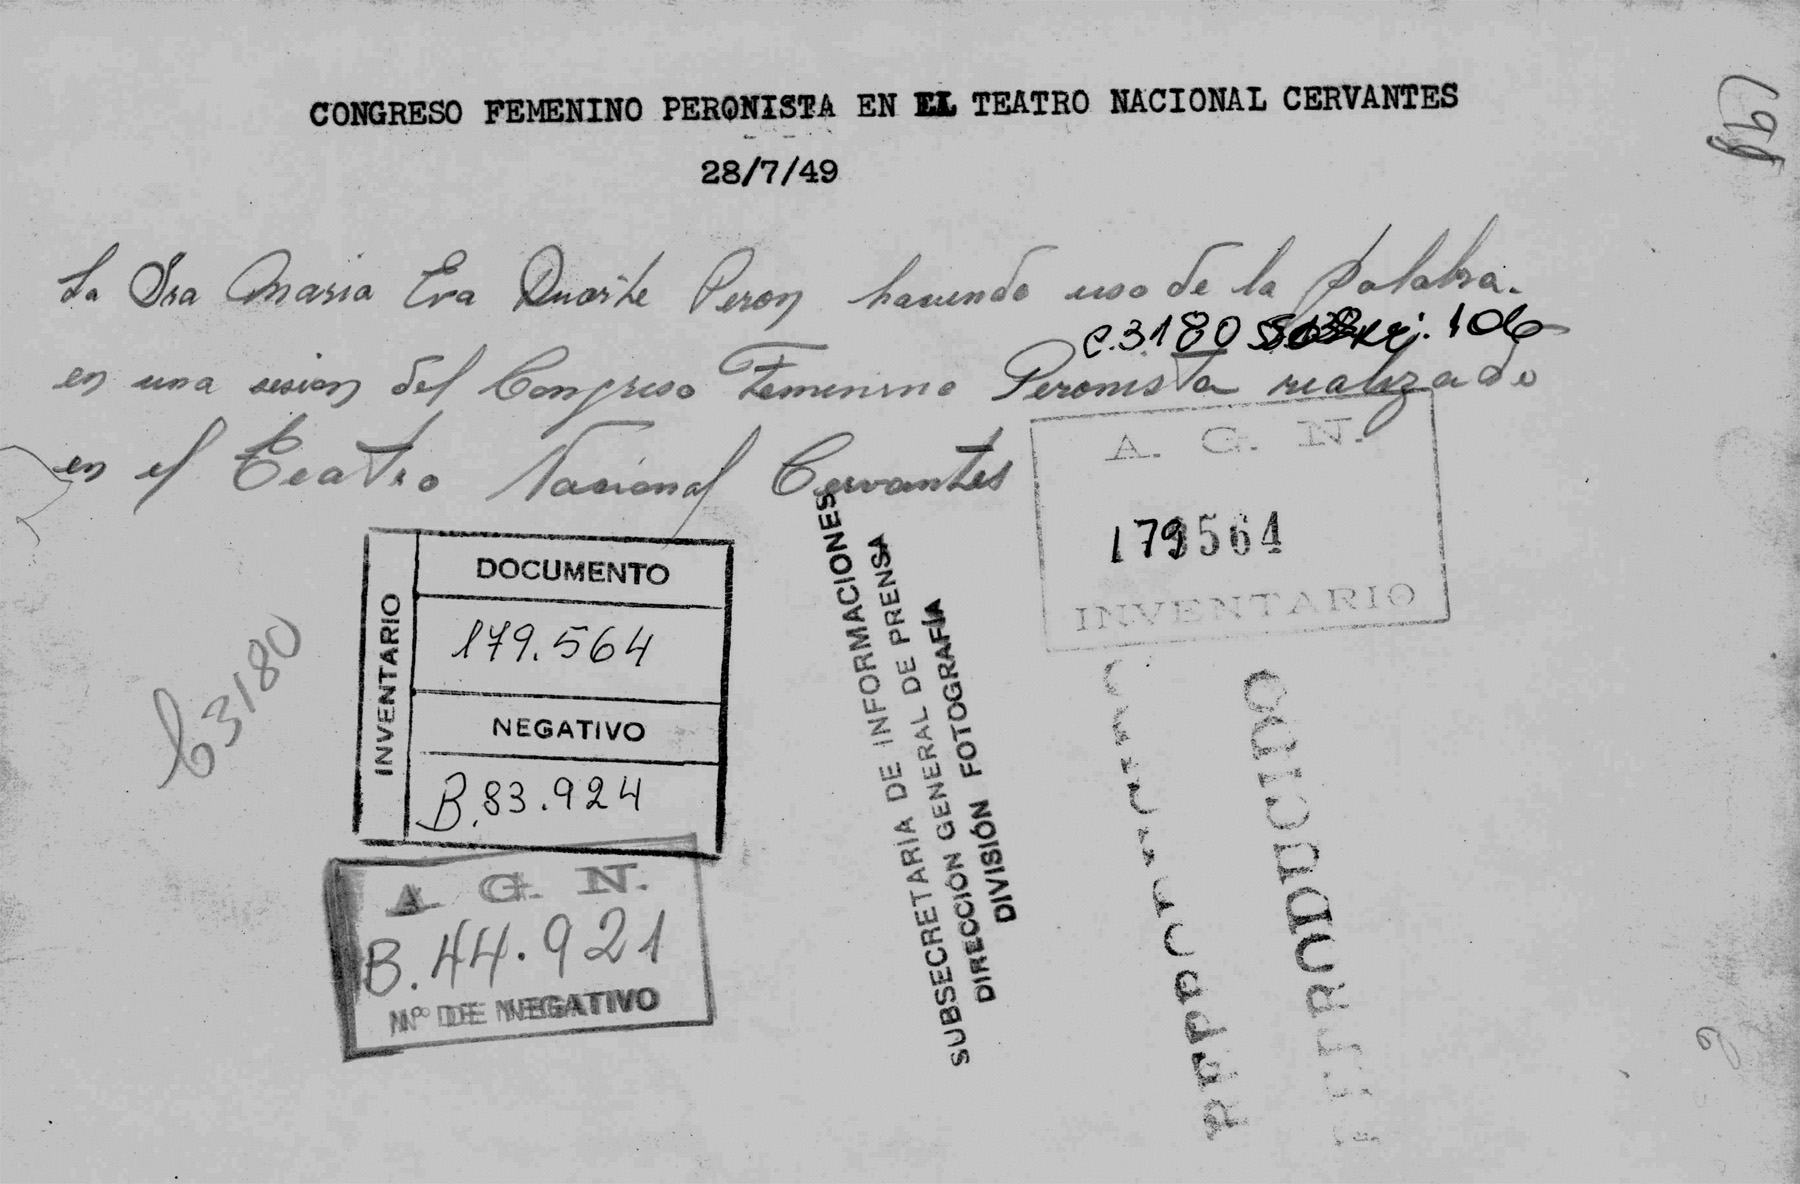 CONGRESO FEMENINO PERONISTA EN EL TEATRO NACIONAL CERVANTES
28/7/49
La Sra Maria Eva Duarte Peron haciendo uso de la palabra.
C.3180 106
en una sesion del Congreso Femenino Peronista realizado
en el Teatro Nacional Cervantes
A. G. N.
179564
INVENTARIO
INVENTARIO
DOCUMENTO
179.564
NEGATIVO
B.83.924
C3180
A. G. N.
B.44.921
Nº DE NEGATIVO
SUBSECRETARIA DE INFORMACIONES
DIRECCIÓN GENERAL DE PRENSA
DIVISIÓN FOTOGRAFÍA